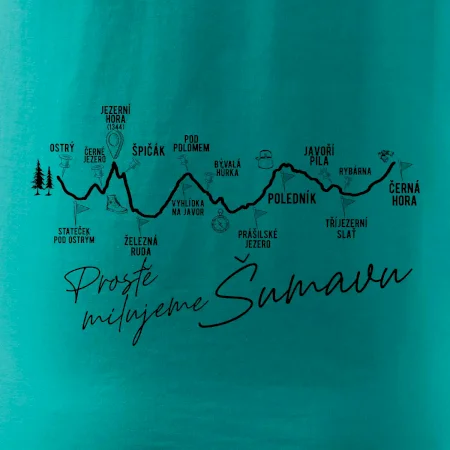 JEZERNÍ
HORA
(1344)
OSTRÝ
ČERNÉ
JEZERO
ŠPIČÁK
POD
POLOMEM
BÝVALÁ
HŮRKA
JAVOŘÍ
PILA
RYBÁRNA
ČERNÁ
HORA
STATEČEK
POD OSTRÝM
ŽELEZNÁ
RUDA
VYHLÍDKA
NA JAVOR
PRÁŠILSKÉ
JEZERO
POLEDNÍK
TŘÍJEZERNÍ
SLAŤ
Prostě
milujeme Šumavu